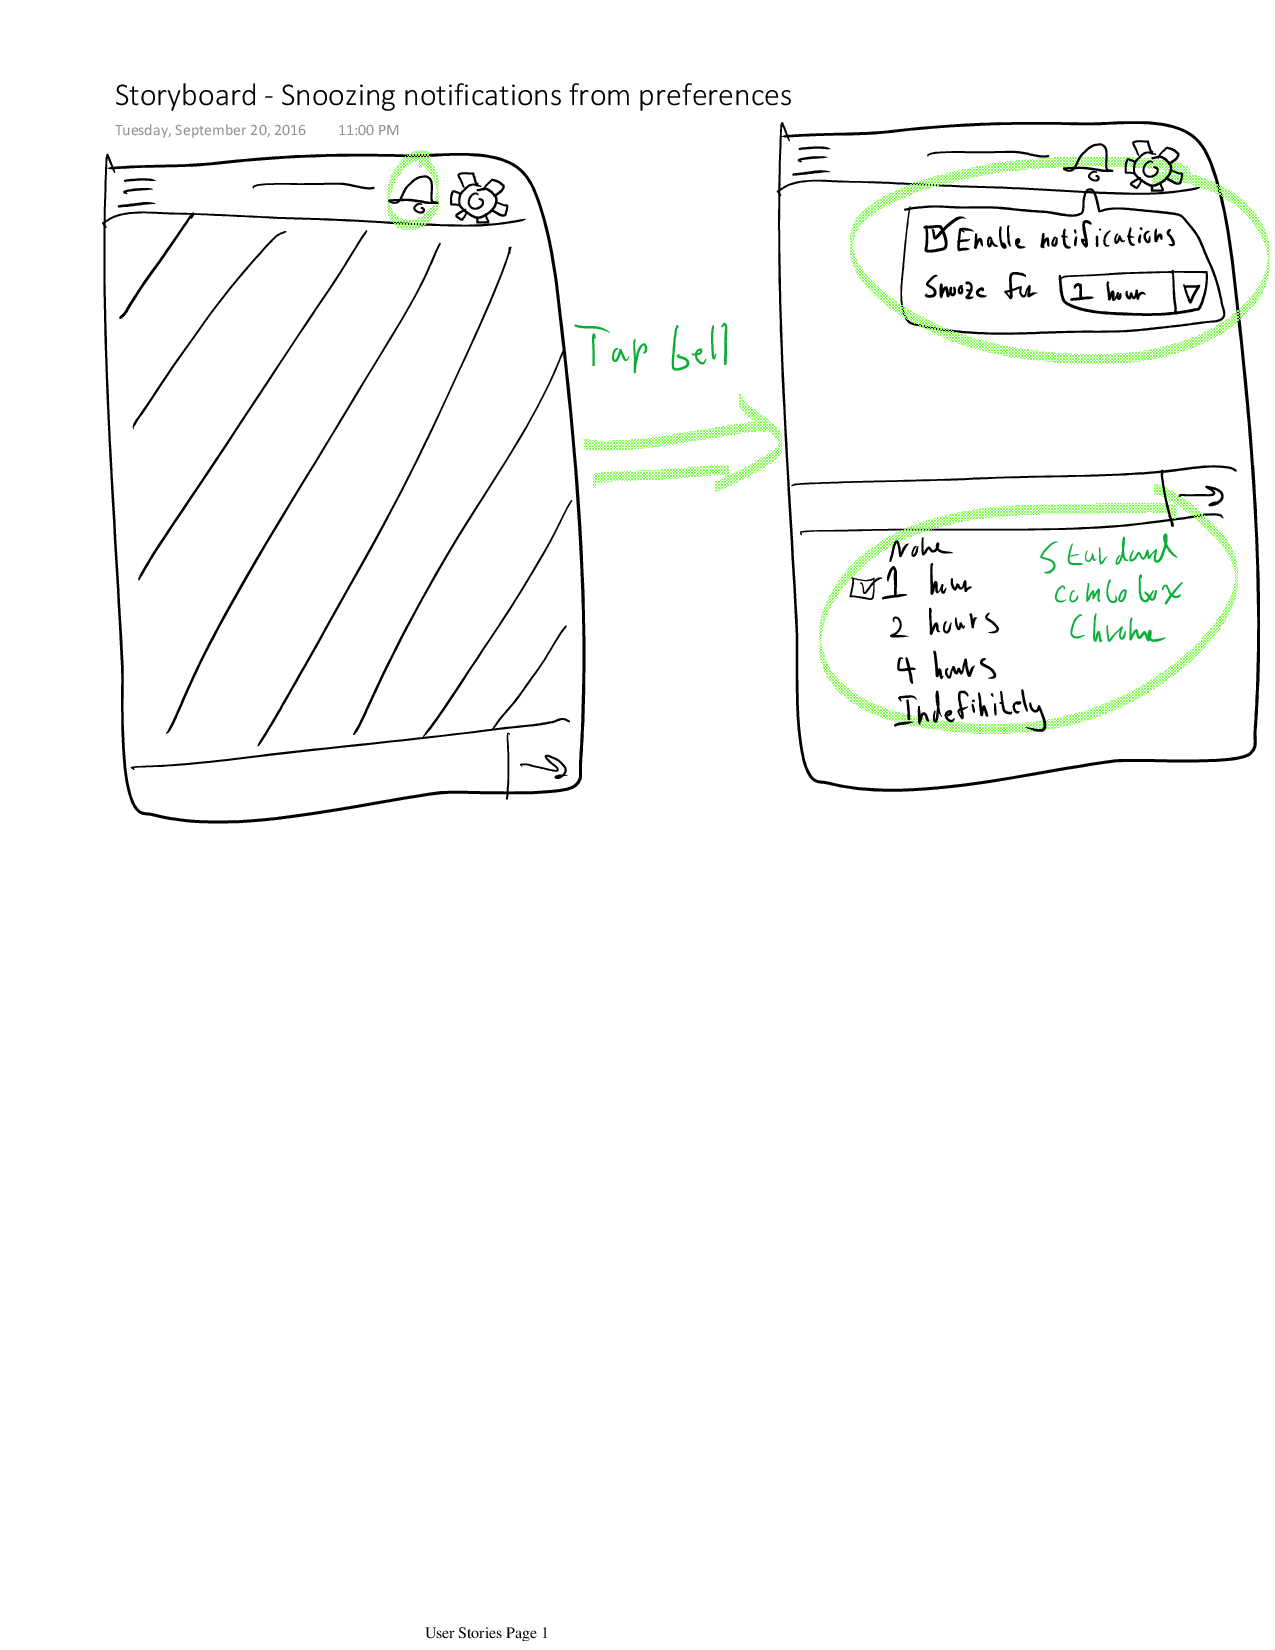 Storyboard - Snoozing notifications from preferences
Tuesday, September 20, 2016 11:00 PM
Tap bell
Enable notifications
Snooze for 1 hour
None
1 hour
2 hours
4 hours
Indefinitely
Standard
combobox
Chrome
User Stories Page 1